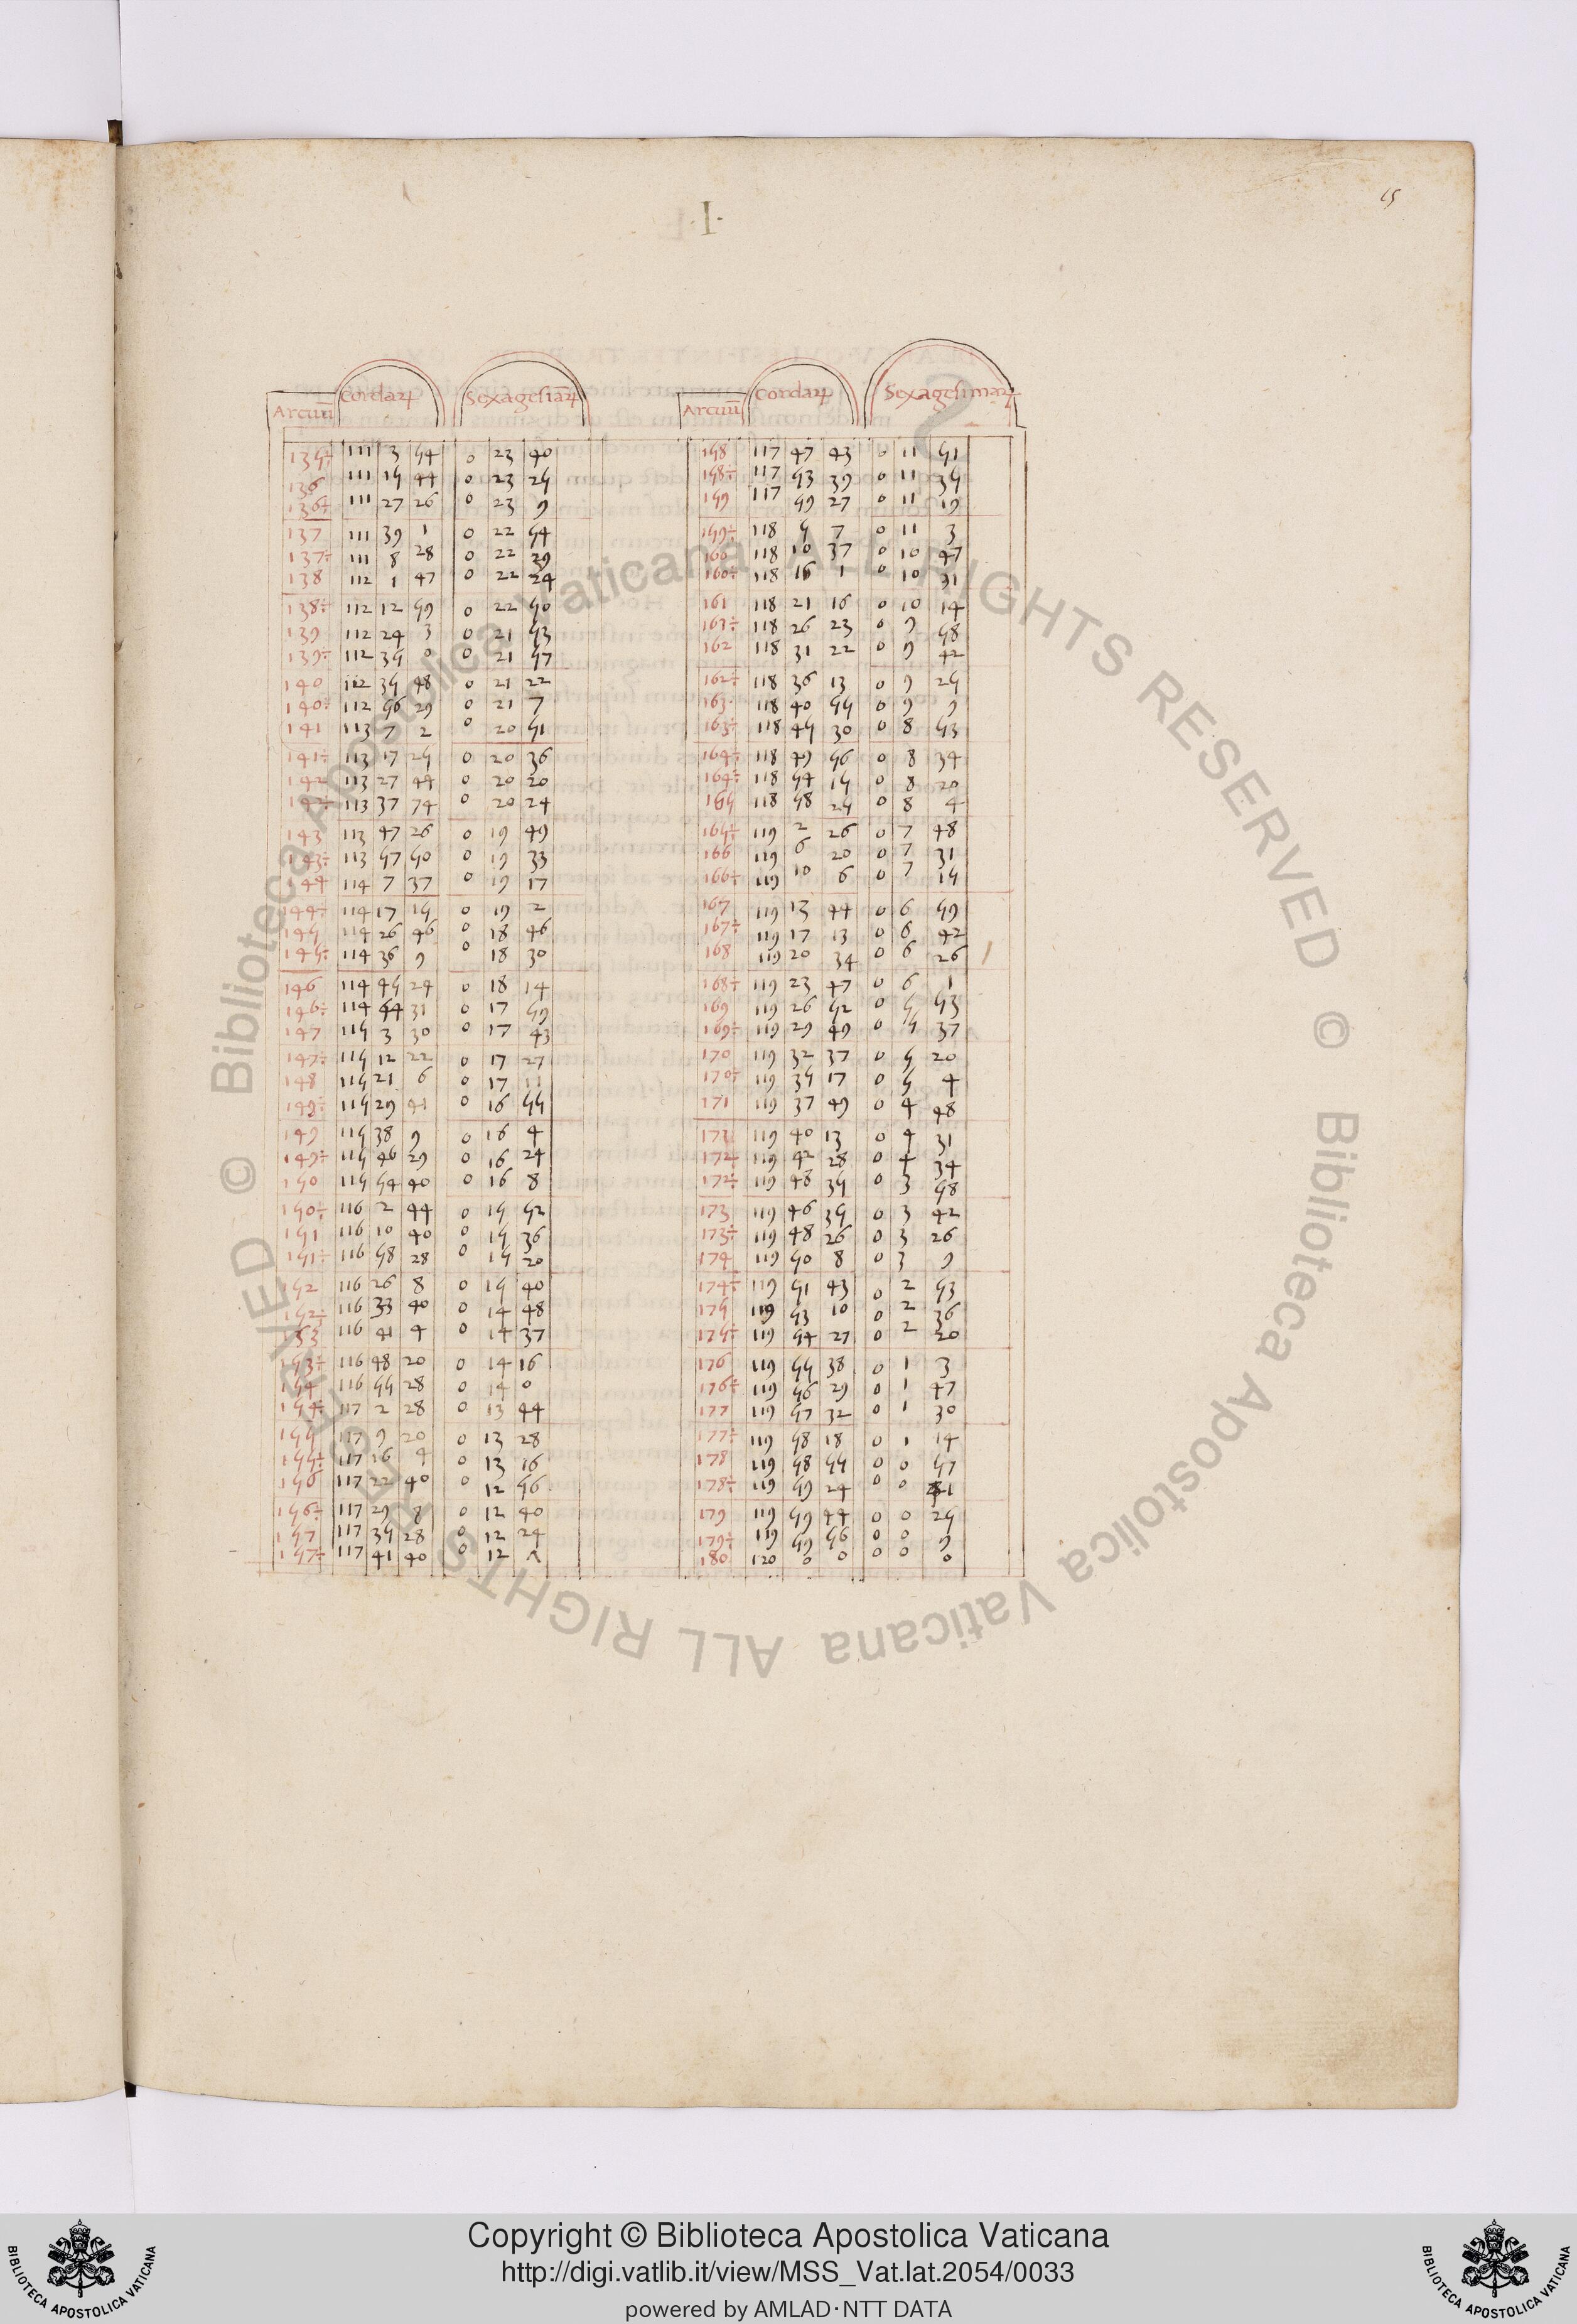 15
·I·
Arcuū Cordaꝝ Sexagesiāꝝ
135÷ 111 3 54 0 23 40
136 111 15 44 0 23 25
136÷ 111 27 26 0 23 9
137 111 39 1 0 22 54
137÷ 111 8 28 0 22 39
138 112 1 47 0 22 24
138÷ 112 12 59 0 22 50
139 112 24 3 0 21 53
139÷ 112 35 0 0 21 57
140 112 35 48 0 21 22
140÷ 112 56 29 0 21 7
141 113 7 2 0 20 51
141÷ 113 17 25 0 20 36
142 113 27 44 0 20 20
142÷ 113 37 74 0 20 24
143 113 47 26 0 19 49
143÷ 113 57 50 0 19 33
144 114 7 37 0 19 17
144÷ 114 17 15 0 19 2
145 114 26 46 0 18 46
145÷ 114 36 9 0 18 30
146 114 45 24 0 18 14
146÷ 114 54 31 0 17 59
147 115 3 30 0 17 43
147÷ 115 12 22 0 17 27
148 115 21 6 0 17 11
149÷ 115 29 41 0 16 55
149 115 38 9 0 16 4
149÷ 115 46 29 0 16 24
150 115 54 40 0 16 8
150÷ 116 2 44 0 15 52
151 116 10 40 0 15 36
151÷ 116 58 28 0 15 20
152 116 26 8 0 15 40
152÷ 116 33 40 0 14 48
153 116 41 4 0 14 37
153÷ 116 48 20 0 14 16
154 116 55 28 0 14 0
154÷ 117 2 28 0 13 44
155 117 9 20 0 13 28
155÷ 117 16 4 0 13 16
156 117 22 40 0 12 56
156÷ 117 29 8 0 12 40
157 117 35 28 0 12 24
157÷ 117 41 40 0 12
Arcuū Cordaꝝ Sexagesimaꝝ
158 117 47 43 0 11 51
158÷ 117 53 39 0 11 35
159 117 59 27 0 11 19
159÷ 118 5 7 0 11 3
160 118 10 37 0 10 47
160÷ 118 16 1 0 10 31
161 118 21 16 0 10 14
161÷ 118 26 23 0 9 58
162 118 31 22 0 9 42
162÷ 118 36 13 0 9 25
163 118 40 55 0 9 9
163÷ 118 45 30 0 8 53
164÷ 118 49 56 0 8 34
164÷ 118 54 15 0 8 20
165 118 58 25 0 8 4
165÷ 119 2 26 0 7 48
166 119 6 20 0 7 31
166÷ 119 10 6 0 7 15
167 119 13 44 0 6 59
167÷ 119 17 13 0 6 42
168 119 20 34 0 6 26
168÷ 119 23 47 0 6 1
169 119 26 52 0 5 53
169÷ 119 29 49 0 5 37
170 119 32 37 0 5 20
170÷ 119 35 17 0 5 4
171 119 37 49 0 4 48
171 119 40 13 0 4 31
172 119 42 28 0 4 34
172÷ 119 48 35 0 3 58
173 119 46 35 0 3 42
173÷ 119 48 26 0 3 26
174 119 50 8 0 3 9
174÷ 119 51 43 0 2 53
175 119 53 10 0 2 36
175÷ 119 54 27 0 2 20
176 119 55 38 0 1 3
176÷ 119 56 29 0 1 47
177 119 57 32 0 1 30
177÷ 119 58 18 0 1 14
178 119 58 55 0 0 57
178÷ 119 59 24 0 0 41
179 119 59 44 0 0 25
179÷ 119 59 56 0 0 9
180 120 0 0 0 0 0
© Biblioteca Apostolica Vaticana ALL RIGHTS RESERVED © Biblioteca Apostolica Vaticana ALL RIGHTS RESERVED
Copyright © Biblioteca Apostolica Vaticana
http://digi.vatlib.it/view/MSS_Vat.lat.2054/0033
powered by AMLAD·NTT DATA
BIBLIOTECA APOSTOLICA VATICANA
BIBLIOTECA APOSTOLICA VATICANA